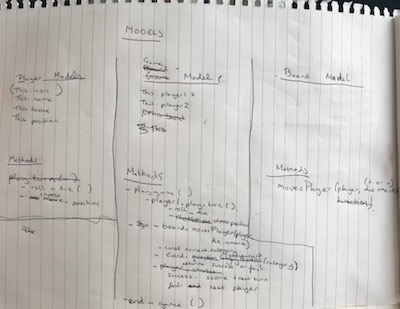 MODELS
Player Models
(This icon )
This. name
This. score
This. position
Methods
play turn ( )
- roll - a - die ( )
- choose - position
Game
Game Model (
This. player 1 +
This. player 2
Methods
- Play game ( )
- player1. play. turn ( )
- roll - die
- board. movesPlayer(player,
die. amount)
- const current category
- card. (category)
returns success or fail
success - score + new turn
fail next player
- end - game ( )
Board Model
Methods
movesPlayer (player, die amount,
(+ or -)
direction)